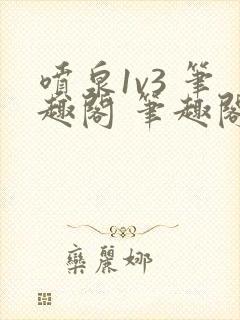 噴泉1v3 筆
趣閣 筆趣閣
欒麗娜